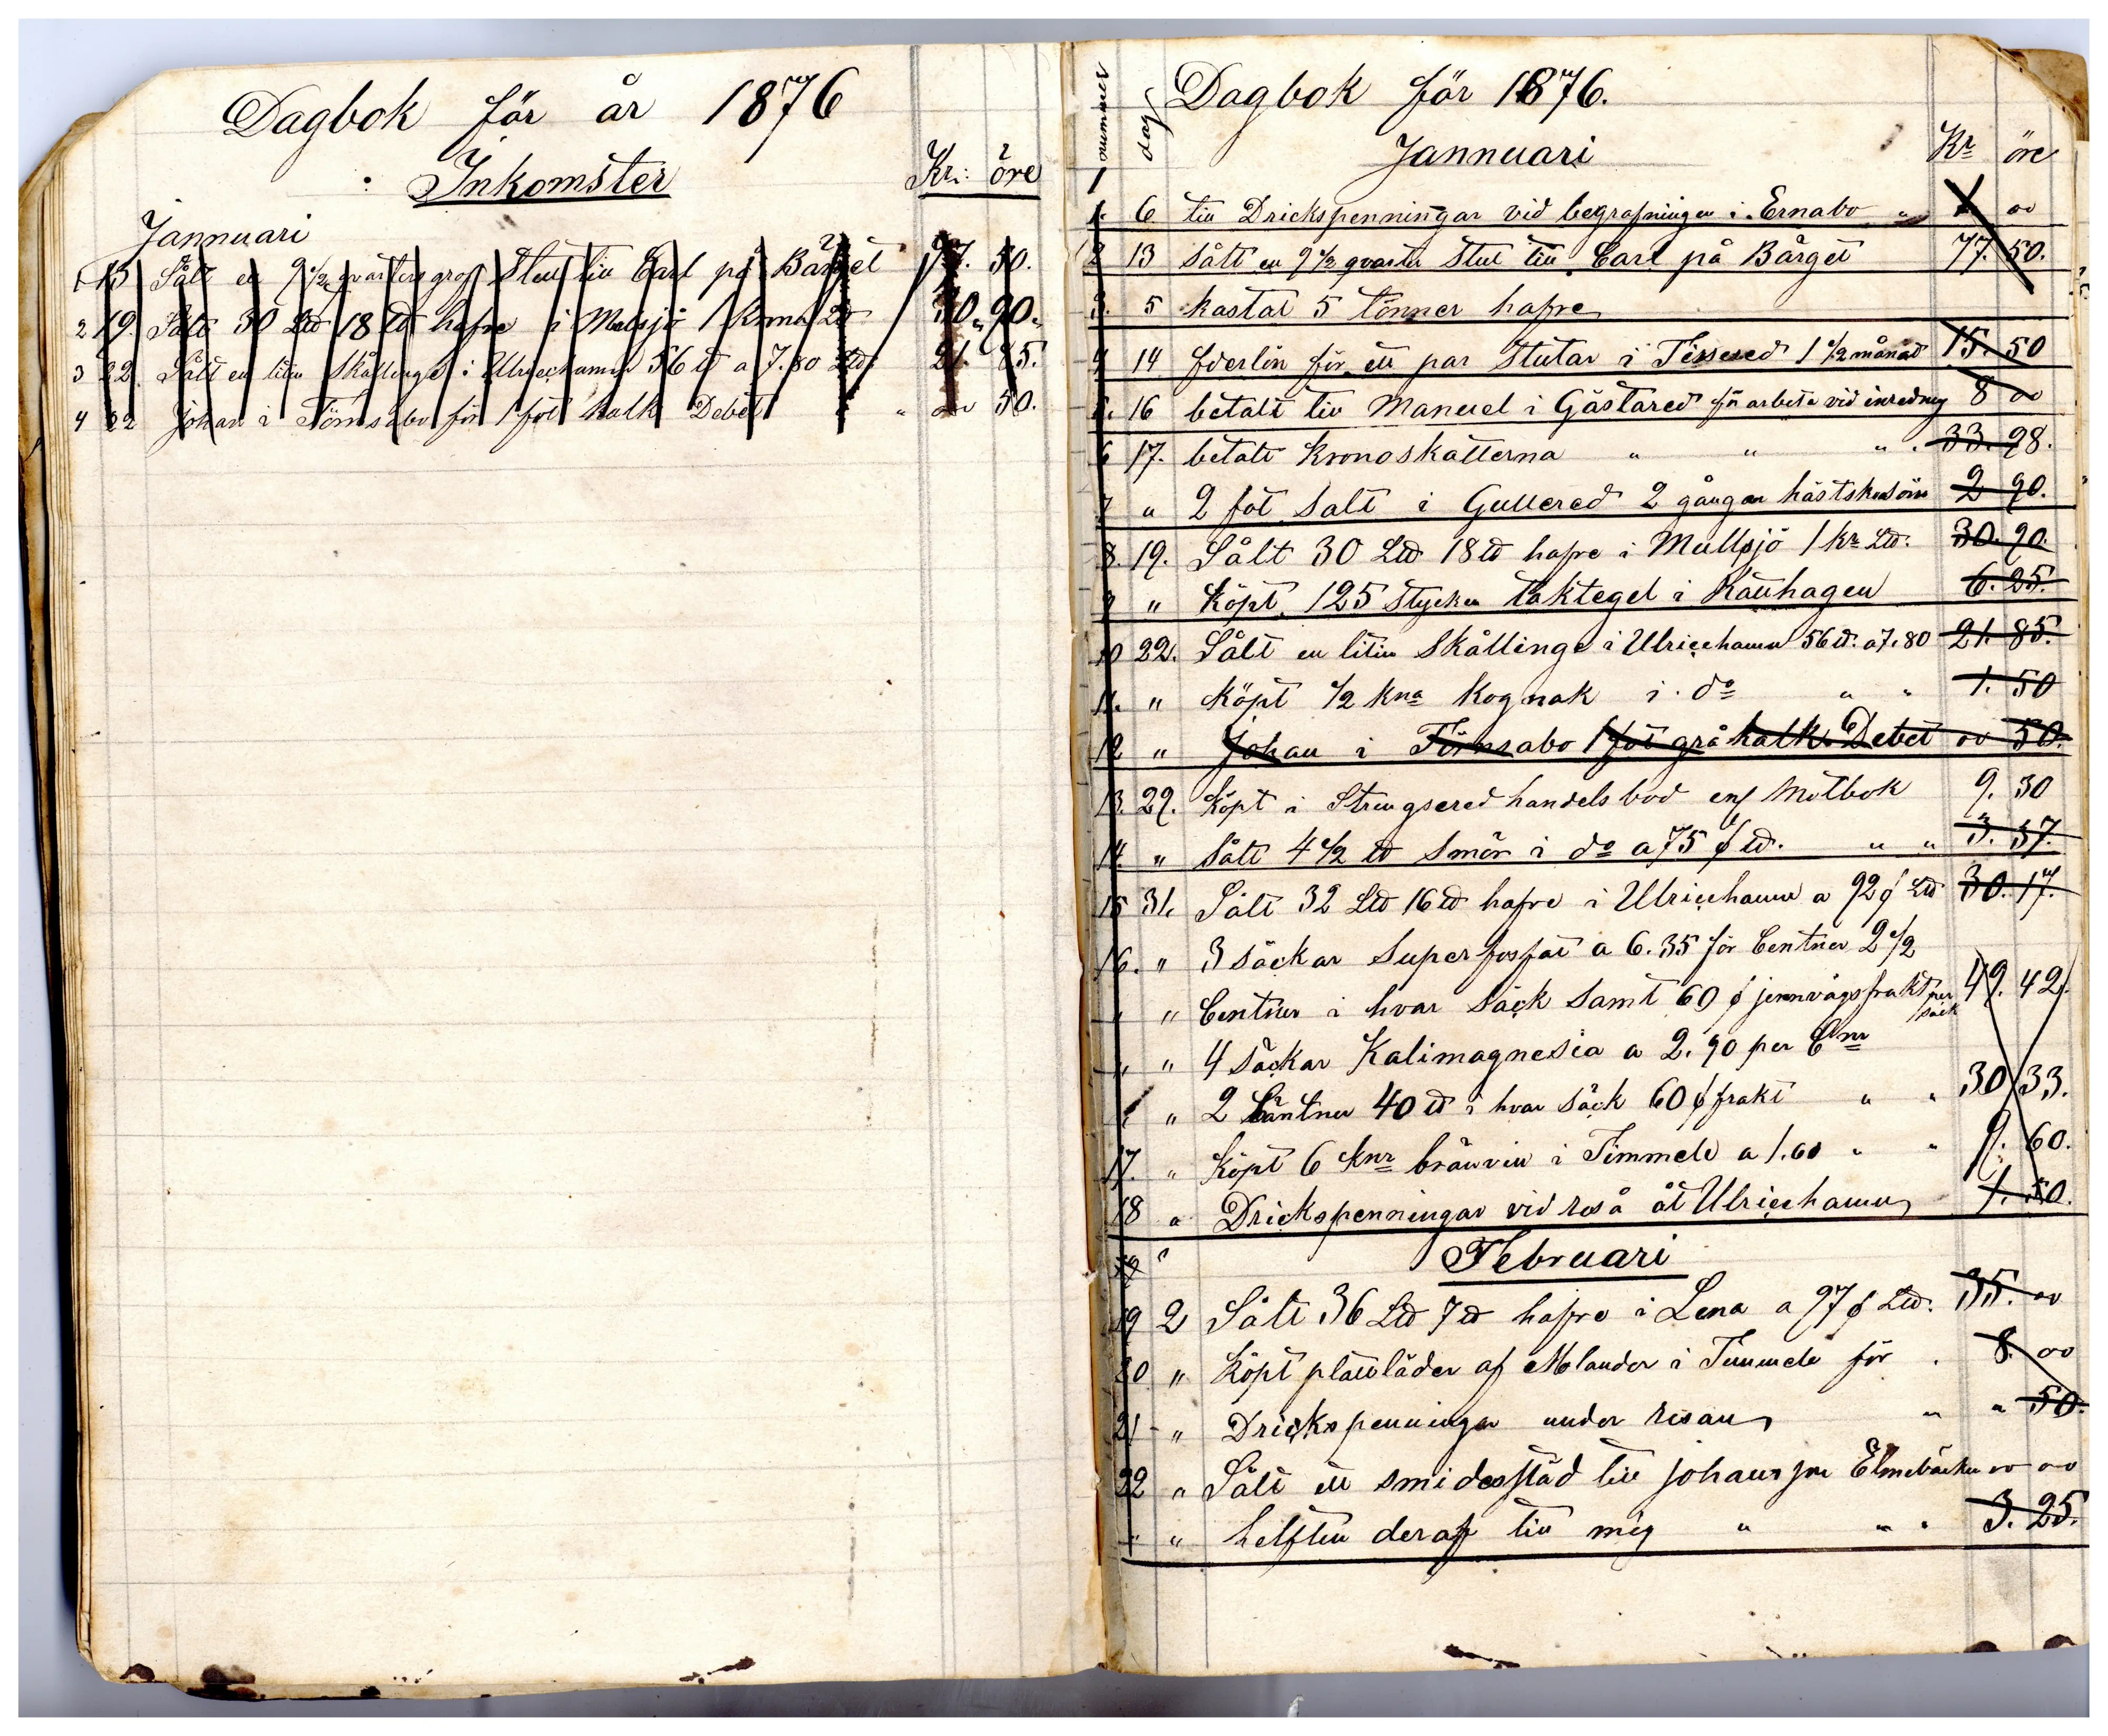 Dagbok för år 1876
Inkomster Kr: öre
Jannuari
1 13 Sålt en 9 1/2 qvarters grof Stut till Carl på Bårget 77. 50.
2 19. Sålt 30 L℔ 18 ℔ hafre i Mulsjö 1 krona L℔ 30. 90.
3 22. Sålt en liten Skållinge i Ulricehamn 56 ℔ a 7.80 L℔ 21. 85.
4 22 Johan i Törnsabo för 1 fot kalk Debet " " 00 50.
nummer dag Dagbok för 1876.
Jannuari Kr öre
1
1. 6 till Drickspenningar vid begrafningen i Ernabo " 00
2 13 Sålt en 9 1/2 qvarter Stut till Carl på Bårget 77. 50.
3. 5 kastat 5 tönner hafre
4 14 foderlön för ett par Stutar i Tissered 1 1/2 månad 15. 50
5. 16 betalt till Manuel i Gästared för arbete vid inredning 8 00
6 17. betalt Kronoskatterna " " " 33. 98.
7 " 2 fot Salt i Gullered 2 gångor hästskosöm 2 90.
8. 19. Sålt 30 L℔ 18 ℔ hafre i Mullsjö 1 kr L℔. 30. 90.
9 " Köpt 125 Stycken taktegel i Rätthagen 6. 25.
10 22. Sålt en liten Skållinge i Ulricehamn 56 ℔. a 7.80 21. 85.
11. " Köpt 1/2 kna Kognak i do " " 1. 50
12 " Johan i Törnsabo 1 fot grå kalk Debet 00 50.
13. 29. Köpt i Strengsered handelsbod enl Motbok 9. 30
14 " Sålt 4 1/2 ℔ Smör i do a 75 ø ℔. " " 3. 37.
15 31. Sålt 32 L℔ 16 ℔ hafre i Ulricehamn a 92 ø L℔ 30. 17.
16. " 3 Säckar Superfosfat a 6.35 för Centner 2 1/2
" " Centner i hvar Säck Samt 60 ø jernvägsfrakt per säck 49. 42.
" " 4 Säckar Kalimagnesia a 2.90 per Cnr
" " 2 Centner 40 ℔ i hvar Säck 60 ø frakt " " 30 33.
17. " Köpt 6 knr bränvin i Timmele a 1.60 " " 9. 60.
18 " Drickspenningar vid reså åt Ulricehamn 1. 50.
19 " Februari
19 2 Sålt 36 L℔ 7 ℔ hafre i Lena a 97 ø L℔. 35. 00
20 " Köpt plattläder af Molander i Timmele för . 8. 00
21 " Drickspenningar under resan " " 50.
22 " Sålt ett smidesstäd till johans på Elmebacken 00 00
" " helften deraf till mig " " " 3. 25.